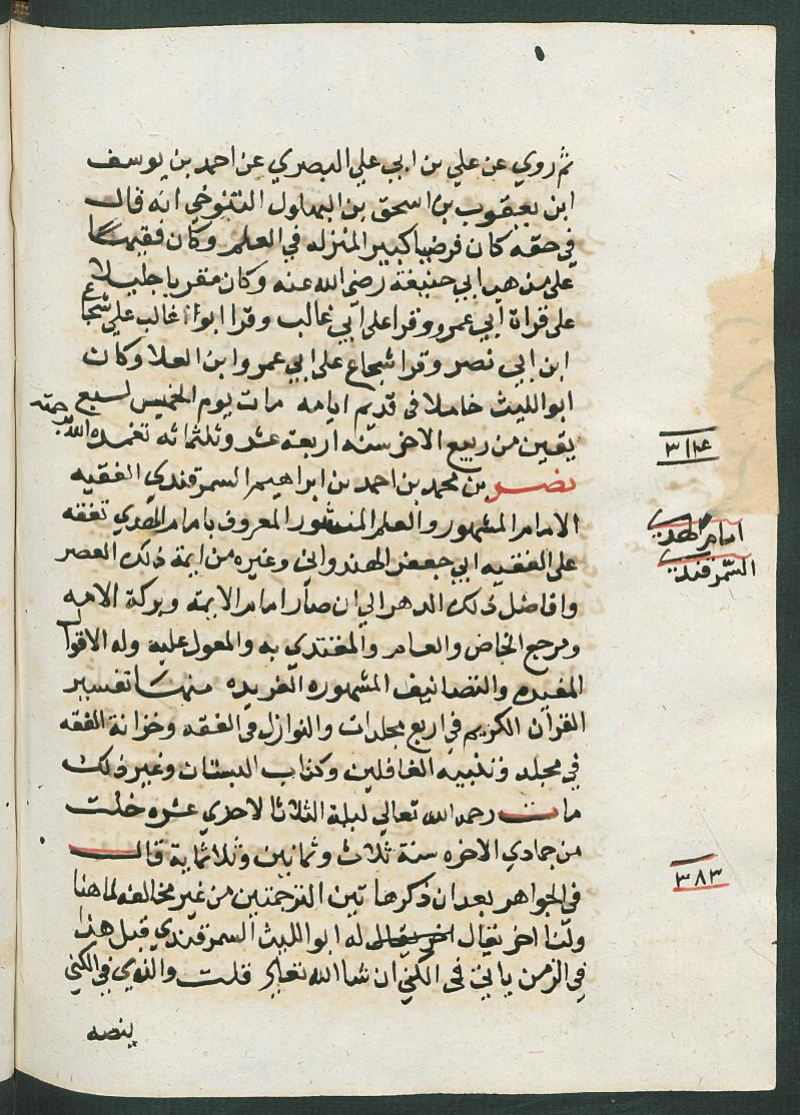 ثم روي عن علي بن ابي علي البصري عن احمد بن يوسف
ابن يعقوب بن اسحق بن البهلول التنوخي انه قال
في حقه كان فرضيا كبير المنزله في العلم وكان فقيها
على مذهب ابي حنيفة رضي الله عنه وكان مقريا جليلا
على قراة ابي عمرو وقرا على ابي غالب وقرا ابوا غالب علي شجاع
ابن ابي نصر وقرا شجاع على ابي عمروا ابن العلا وكان
ابو الليث خاملا في قديم ايامه مات يوم الخميس لسبع
بقين من ربيع الاخر سنه اربعة عشر وثلثمائه تغمده الله برحمته
٣١٤
نصر بن محمد بن احمد بن ابراهيم السمرقندي الفقيه
الامام المشهور والعلم المنشور المعروف بامام الهدي تفقه
امام الهدي
على الفقيه ابي جعفر الهندواني وغيره من ايمة ذلك العصر
السمرقندي
وافاضل ذلك الدهر الي ان صار امام الايمه وبركة الامه
ومرجع الخاص والعام والمقتدي به والمعول عليه وله الاقوال
المفيده والتصانيف المشهوره الفريده منها تفسير
القران الكريم في اربع مجلدات والنوازل في الفقه وخزانة الفقه
في مجلد وتنبيه الغافلين وكتاب البستان وغير ذلك
مات رحمه الله تعالي ليلة الثلاثا لاحدي عشره خلت
من جمادي الاخره سنة ثلاث وثمانين وثلاثماية قال
٣٨٣
في الجواهر بعد ان ذكرها تين الترجمتين من غير مخالفه لما هنا
ولنا اخر يقال له ابو الليث السمرقندي قبل هذا
في الزمن ياتي في الكني ان شا الله تعالي قلت والذي في الكني
بنصه